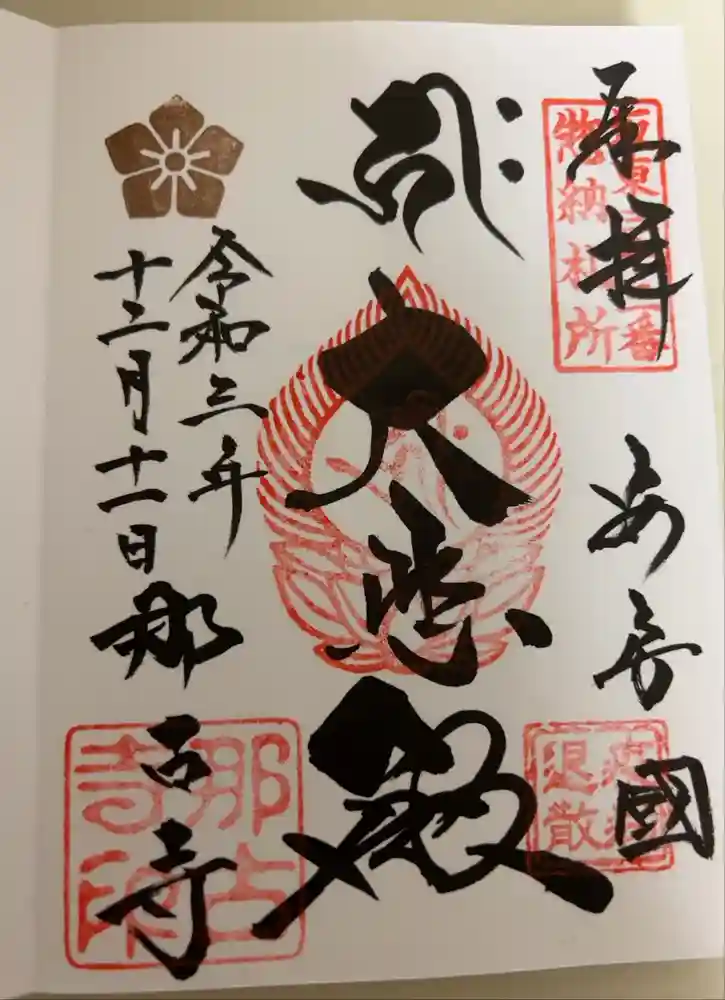 奉拝
安房國
大悲殿
令和三年
十二月十一日
那古寺
坂東三十三番
惣納札所
退散
那古
寺印